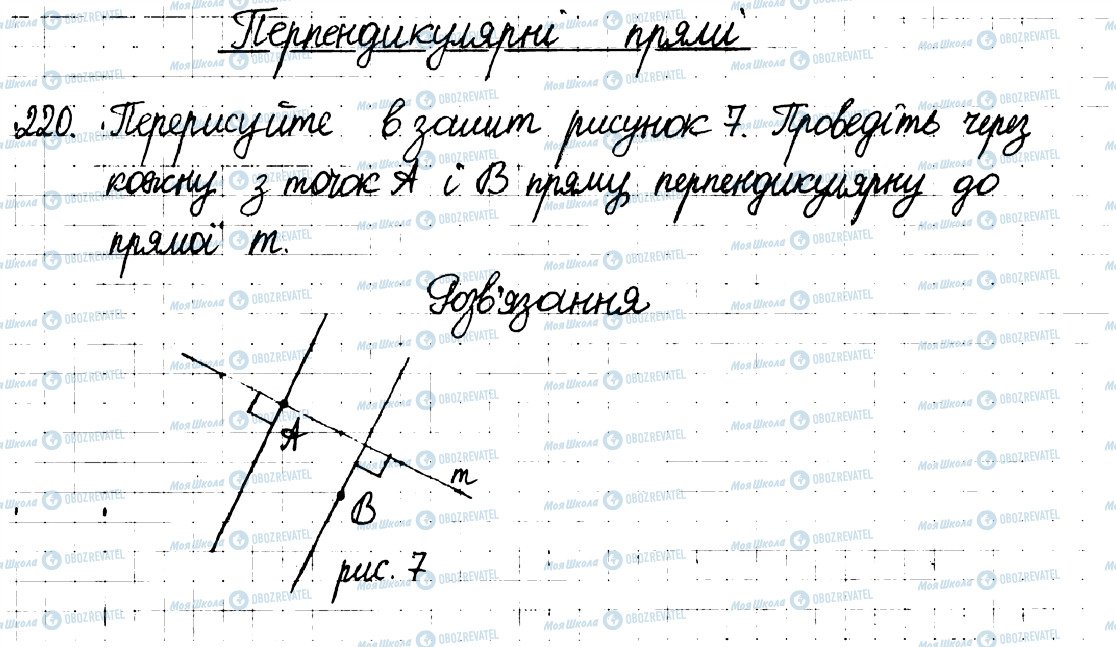 Перпендикулярні прямі
220. Перерисуйте в зошит рисунок 7. Проведіть через
кожну з точок А і В пряму, перпендикулярну до
прямої m.
Розв'язання
А
m
В
рис. 7
Моя Школа OBOZREVATEL